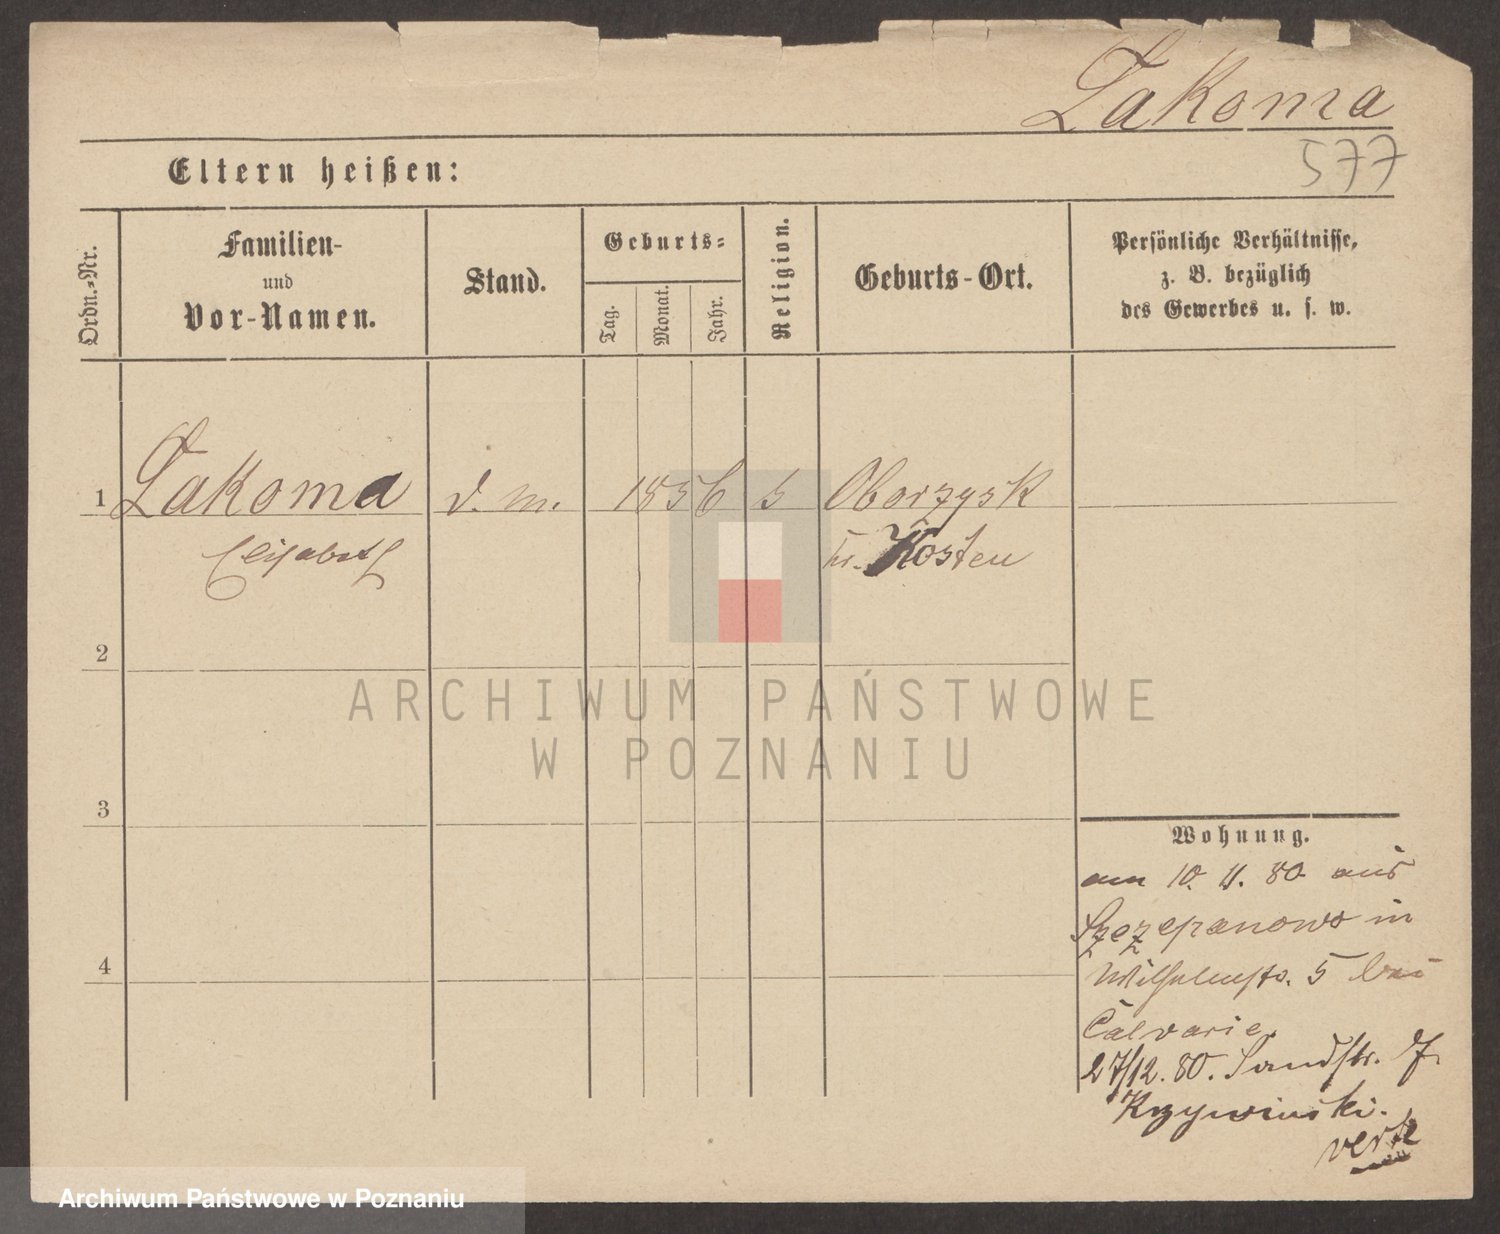 Lakoma
577
Eltern heißen:
Ordn.-Nr.
Familien-
und
Vor-Namen.
Stand.
Geburts-
Tag.
Monat.
Jahr.
Religion.
Geburts-Ort.
Persönliche Verhältnisse,
z. B. bezüglich
des Gewerbes u. s. w.
1 Lakoma d. m. 1856 Oborzysk
Elisabeth Kr. Kosten
2
3
4
Wohnung.
am 10. 11. 80 aus
Szczepanowo in
Wilhelmstr. 5 bei
Calvarie
27/12. 80. Sandstr. 7
Krzywinski.
verte
ARCHIWUM PAŃSTWOWE
W POZNANIU
Archiwum Państwowe w Poznaniu